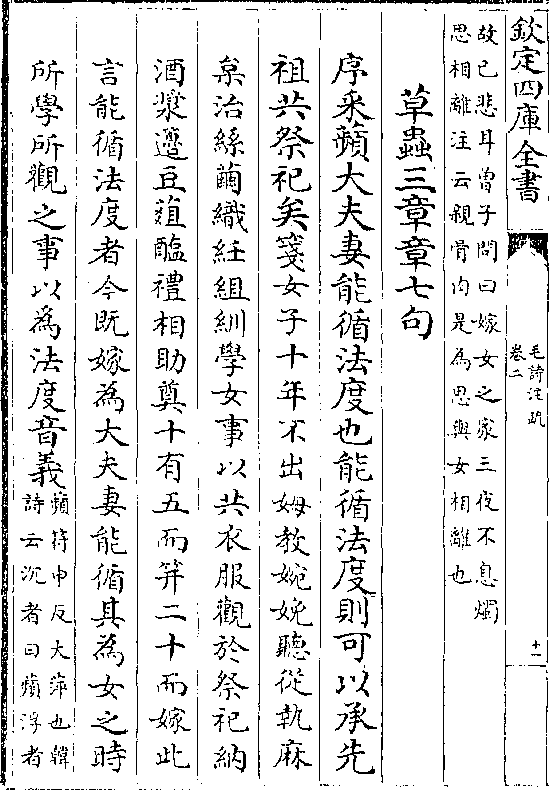 欽定四庫全書
毛詩注疏
卷二
十一
故已悲耳曾子問曰嫁女之家三夜不息燭
思相離注云親骨肉是為思與女相離也
草蟲三章章七句
序采蘋大夫妻能循法度也能循法度則可以承先
祖共祭祀矣箋女子十年不出姆教婉娩聽從執麻
枲治絲繭織紝組紃學女事以共衣服觀於祭祀納
酒漿籩豆葅醢禮相助奠十有五而笄二十而嫁此
言能循法度者今既嫁為大夫妻能循其為女之時
所學所觀之事以為法度音義蘋符申反大蓱也韓
詩云沉者曰蘋浮者